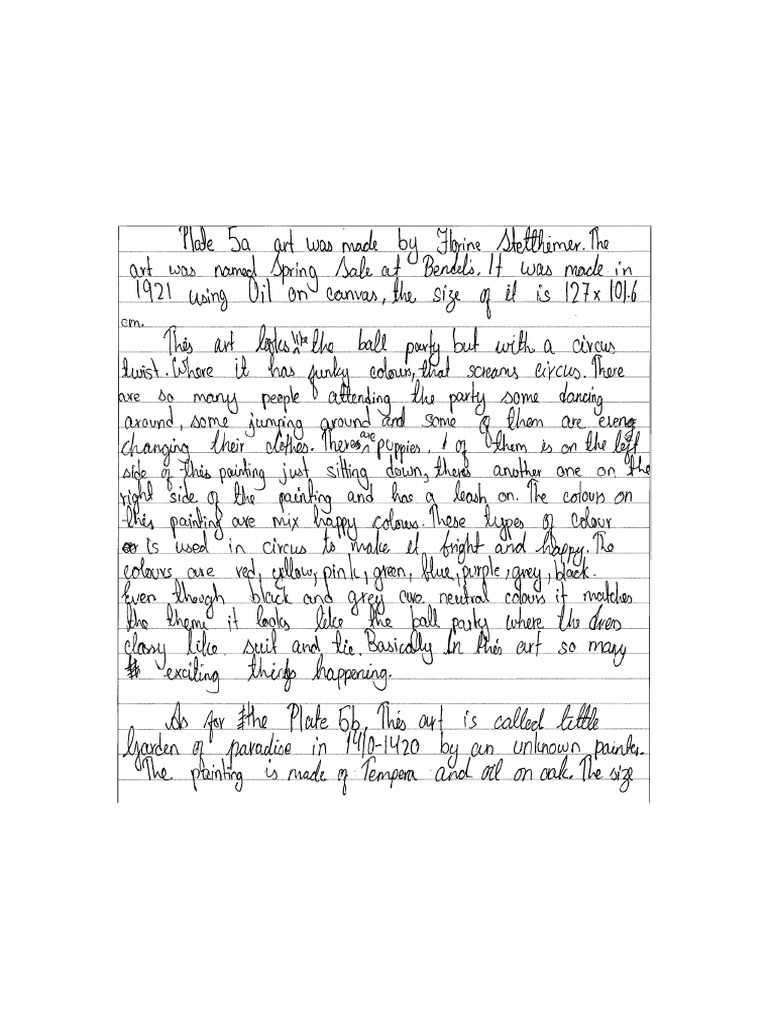 Plate 5a art was made by Florine Stetthimer. The
art was named Spring Sale at Bendel's. It was made in
1921 using Oil on canvas, the size of it is 127x101.6
cm.
This art looks like the ball party but with a circus
twist. Where it has funky colours, that screams circus. There
are so many people attending the party some dancing
around, some jumping around and some of them are even
changing their clothes. Theres are puppies, 1 of them is on the left
side of this painting just sitting down, theres another one on the
right side of the painting and has a leash on. The colours on
this painting are mix happy colours. These types of colour
is used in circus to make it bright and happy. The
colours are red, yellow, pink, green, blue, purple, grey, black.
Even though black and grey are neutral colours it matches
the theme it looks like the ball party where the dress
classy like suit and tie. Basically In this art so many
exciting things happening.
As for the Plate 5b, This art is called little
Garden of paradise in 1410-1420 by an unknown painter.
The painting is made of Tempera and oil on oak. The size